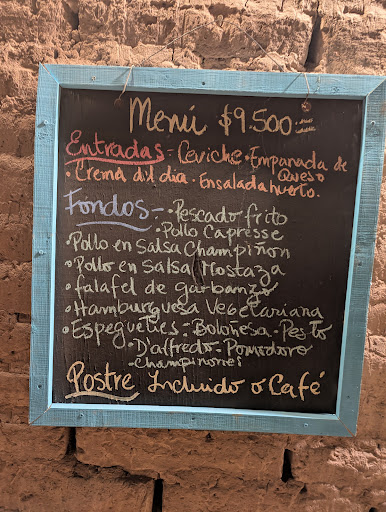 Menú $9.500.-
Entradas - Ceviche · Empanada de
· Crema del dia · Ensalada huerto. Queso
Fondos - · Pescado frito
· Pollo Capresse
· Pollo en salsa Champiñon
· Pollo en salsa Mostaza
· falafel de garbanzo
· Hamburguesa Vegetariana
· Espeguettes - Boloñesa - Pesto
· D'alfredo - Pomodoro
- Champiñones
Postre Incluido o Café